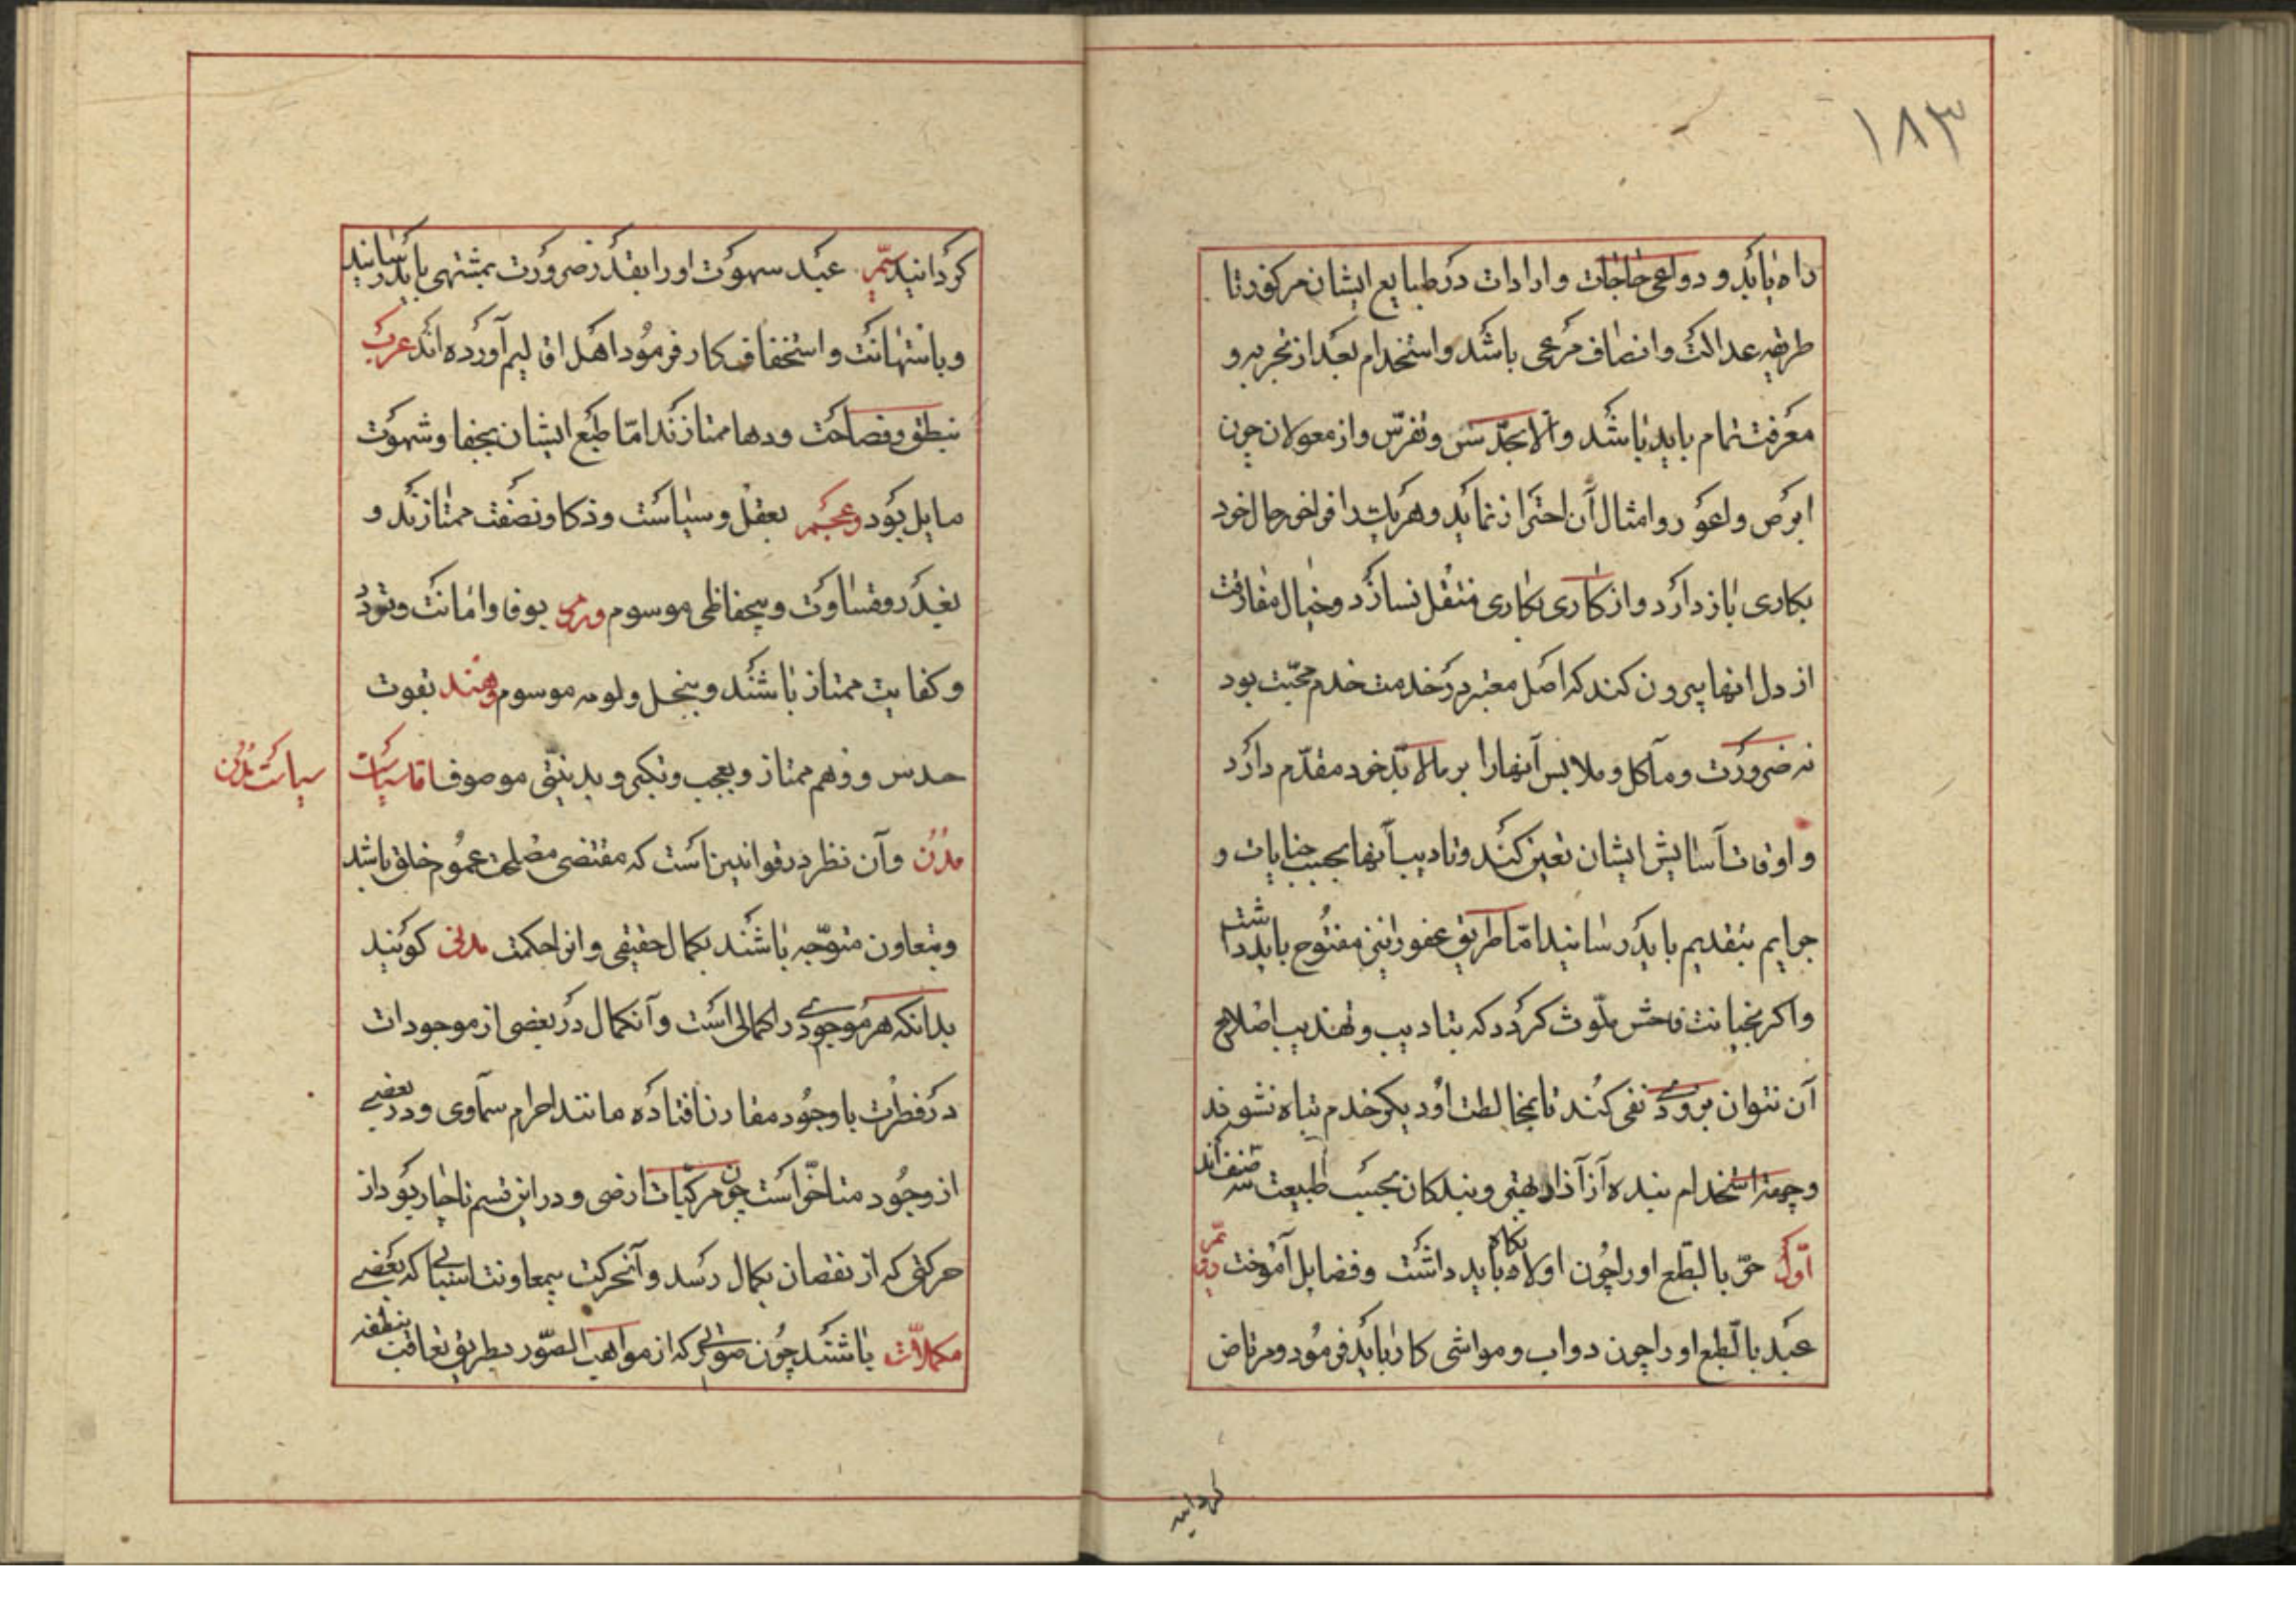 ١٨٣
راه یابد و دواعی حاجات و ارادات در طبایع ایشان مرکوز تا
طریقه عدالت و انصاف مرعی باشد و استخدام بعد از تجربه و
معرفت تمام باید باشد و الا بحدس و تفرس و از معولان چون
ابرص و اعور و امثال آن احتراز نماید و هریک را فراخور حال خود
بکاری باز دارد و از کاری بکاری منتقل نسازد و خیال مفارقت
از دل انها بیرون کند که اصل معتبر در خدمت خدم محبت بود
نه ضرورت و مآکل و ملابس آنها را بر مالابد خود مقدم دارد
و اوقات آسایش ایشان تعین کند و تادیب آنها بحسب جنایات و
جرایم بتقدیم باید رسانید اما طریق عفو را نیز مفتوح باید داشت
و اکر بخیانت فاحش ملوث کردد که بتادیب و تهذیب اصلاح
آن نتوان بزودی نفی کند تا بمخالطت او دیکر خدم تباه نشوند
و جهة استخدام بنده از آزاد بهتر و بندکان بحسب طبیعت سه صنف اند
اول حرّ بالطبع او را چون اولاد نکاه باید داشت و فضایل آموخت دویم
عبد بالطبع او را چون دواب و مواشی کار باید فرمود و مرتاض
کردانید
کردانید سیم عبد شهوت او را بقدر ضرورت بمشتهی باید رسانید
و باستهانت و استخفاف کار فرمود اهل اقالیم آورده اند عرب
بنطق و فصاحت و دها ممتازند اما طبع ایشان بجفا و شهوت
مایل بود و عجم بعقل و سیاست و ذکا و نصفت ممتازند و
بغدر و قساوت و بیحفاظی موسوم و روم بوفا و امانت و تودد
و کفایت ممتاز باشند و ببخل و لومه موسوم و هند بقوت
حدس و وهم ممتاز و بعجب و تکبر و بدنیتی موصوف اما سیاست
سیاست مدن
مدن و آن نظر در قوانین است که مقتضی مصلحت عموم خلق باشد
و بتعاون متوجه باشند بکمال حقیقی و انرا حکمت مدنی کویند
بدانکه هر موجودی را کمالی است و آنکمال در بعضی از موجودات
در فطرت با وجود مقارن افتاده مانند اجرام سماوی و در بعضی
از وجود متاخر است چون مرکبات ارضی و در این قسم ناچار بود از
حرکتی که از نقصان بکمال رسد و آنحرکت بمعاونت اسبابی که بعضی
مکملات باشند چون صوری که از مواهب الصور بطریق تعاقب بنطفه